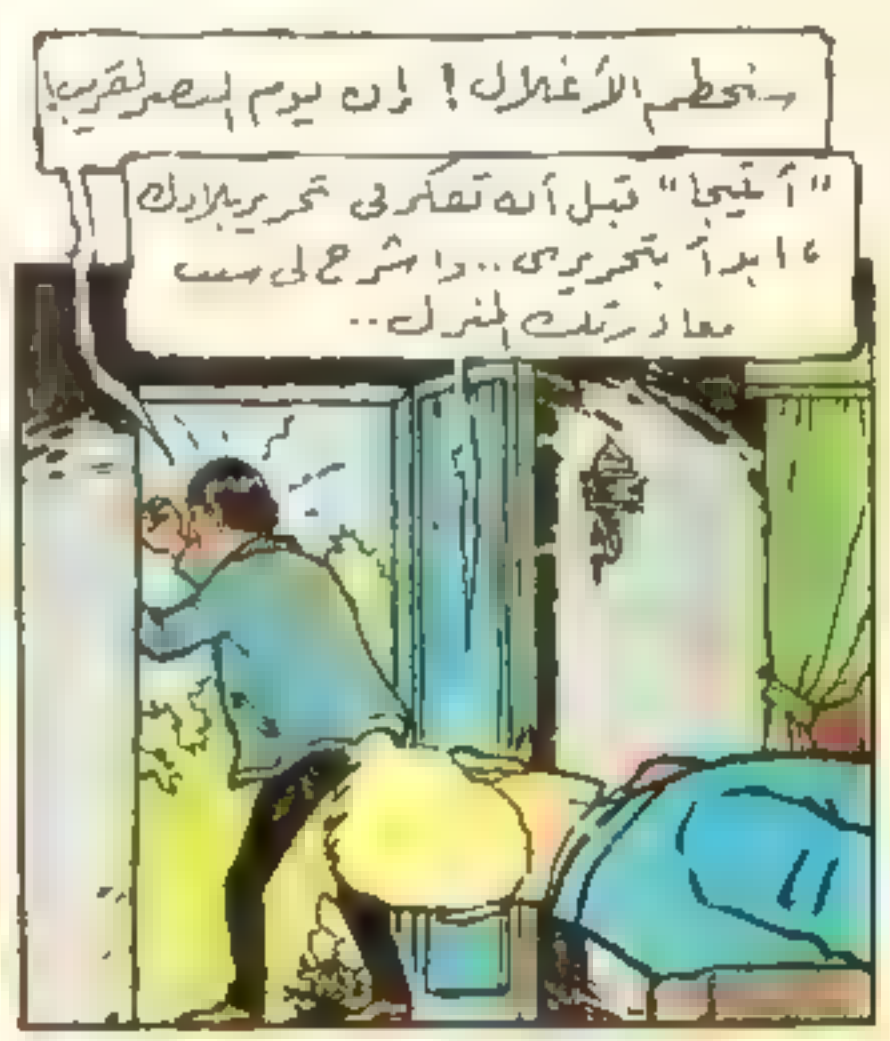 سنحطم الأغلال! إن يوم النصر لقريب!
"أنيتجا" قبل أن تفكر فى تحرير بلادك
، ابدأ بتحريرى.. واشرح لى سبب
مغادرتك المنزل..